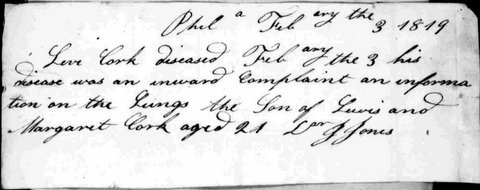 Phil a Feb ary the 3 1819
Leve Cork diseased Feb ary the 3 his
disease was an inward Complaint an informa
tion on the Lungs the Son of Lewis and
Margaret Cork aged 21 Jones